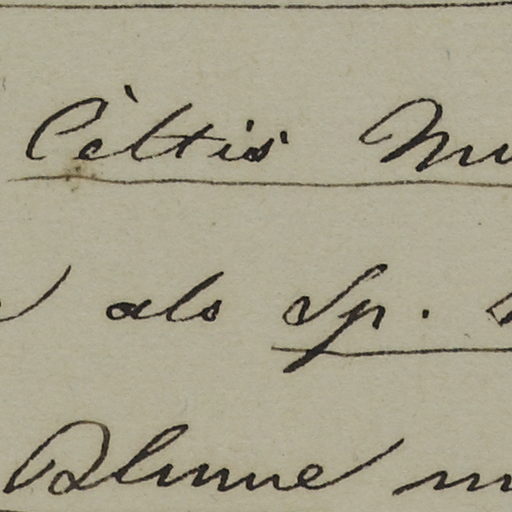 Cèltis
als Sp.
Blume